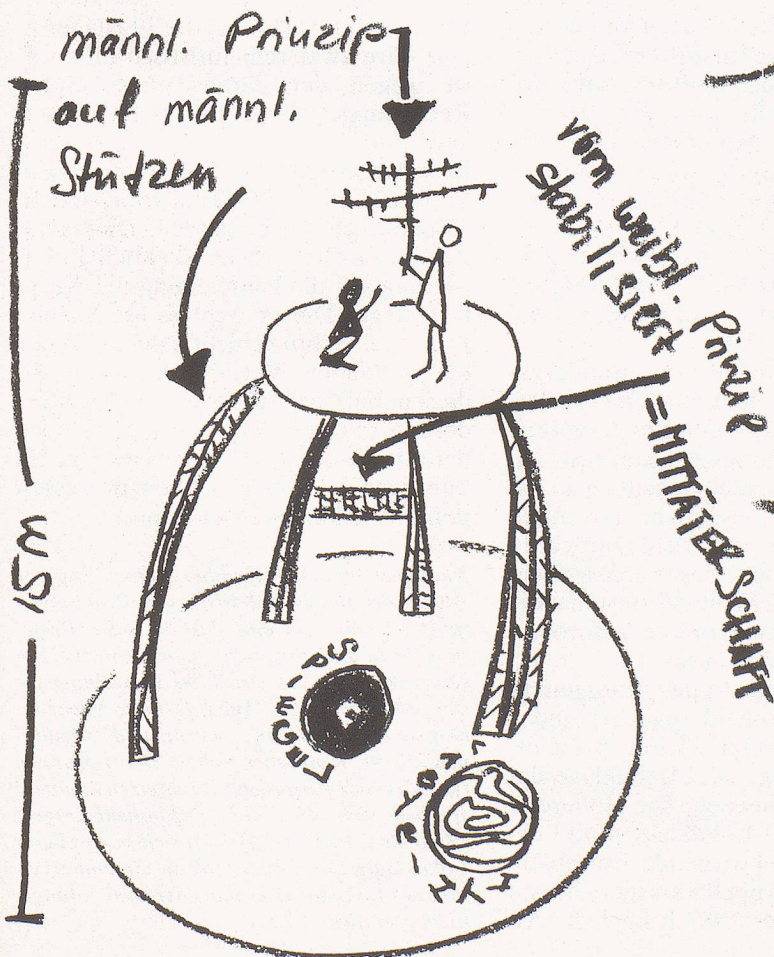 männl. Prinzip
auf männl.
Stützen
vom weibl. Prinzip
stabilisiert
=MITTÄTERSCHAFT
15 m
SPIEGEL